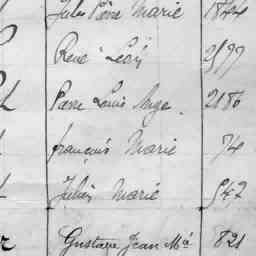 Jules Marie 1844
René Léon
Pierre Louis Ange 2180
françois Marie 74
Julien Marie 547
Gustave Jean Mie 821